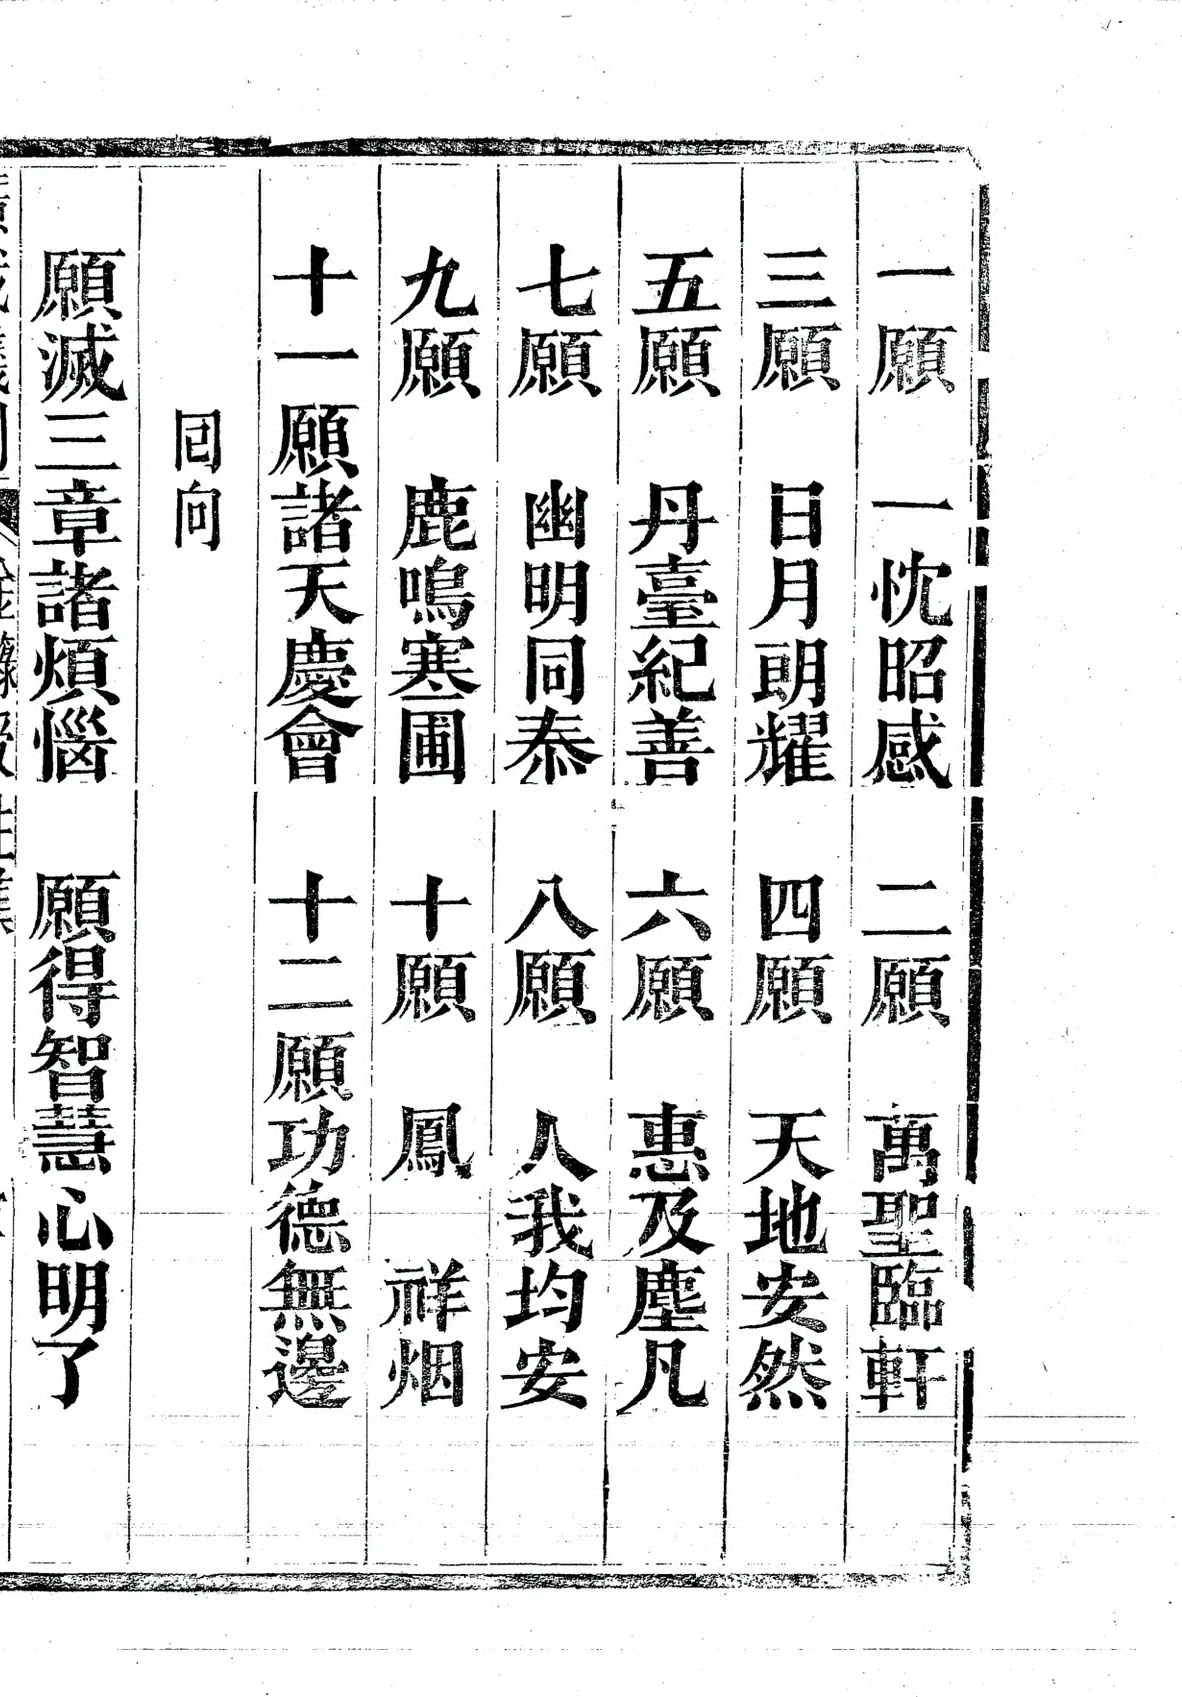 一願　一忱昭感　二願　萬聖臨軒
三願　日月朗耀　四願　天地安然
五願　丹臺紀善　六願　惠及塵凡
七願　幽明同泰　八願　人我均安
九願　鹿鳴寒圃　十願　鳳　祥烟
十一願諸天慶會　十二願功德無邊
囘向
願滅三章諸煩惱　願得智慧心明了